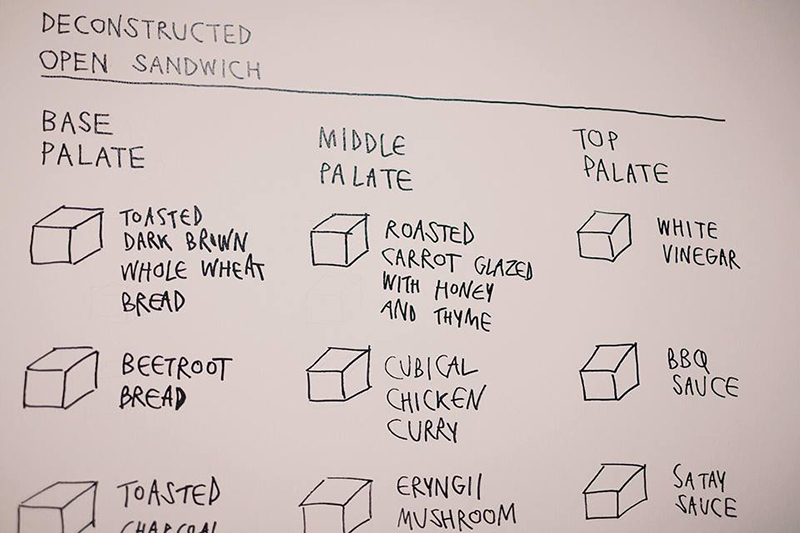 DECONSTRUCTED
OPEN SANDWICH
BASE
PALATE
TOASTED
DARK BROWN
WHOLE WHEAT
BREAD
BEETROOT
BREAD
TOASTED
CHARCOAL
MIDDLE
PALATE
ROASTED
CARROT GLAZED
WITH HONEY
AND THYME
CUBICAL
CHICKEN
CURRY
ERYNGII
MUSHROOM
TOP
PALATE
WHITE
VINEGAR
BBQ
SAUCE
SATAY
SAUCE